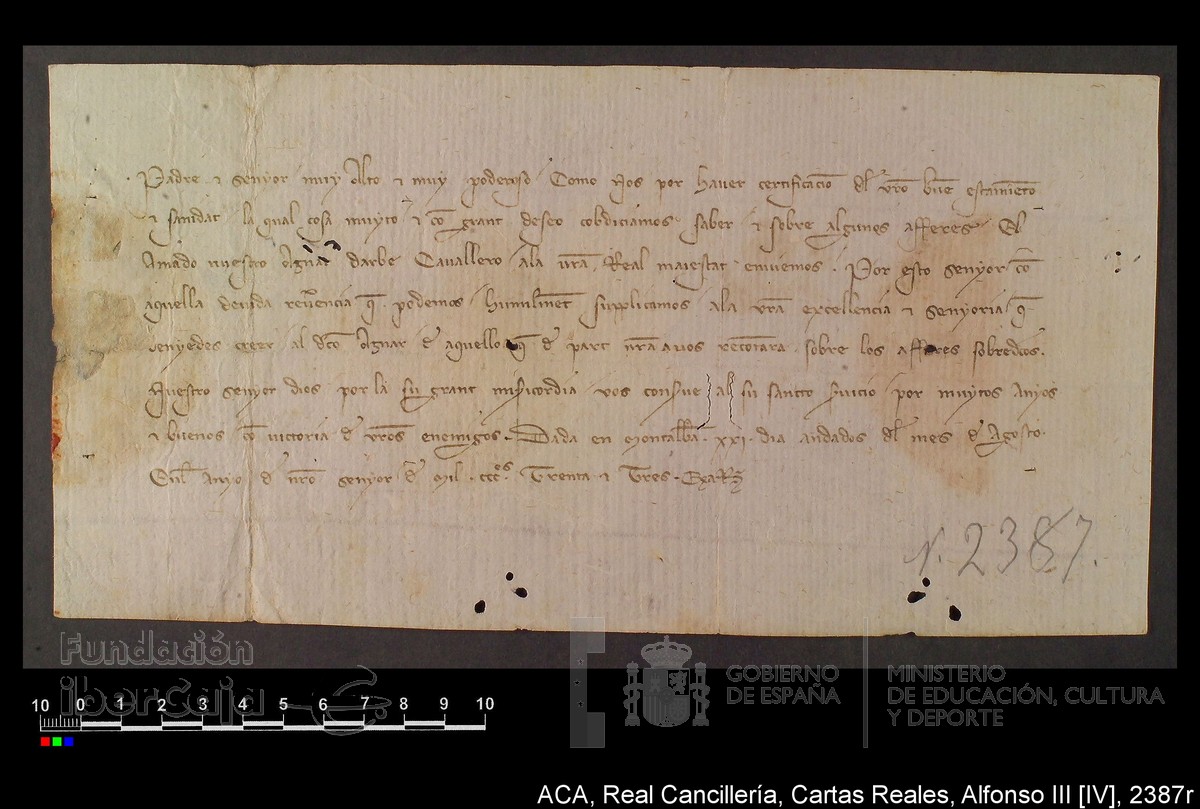 Padre ⁊ senyor muy alto ⁊ muy poderoso Como Nos por haver certificacio dl vro bue estamieto
⁊ sanidat la qual cosa muyto ⁊ co grant deseo cobdiciamos saber ⁊ sobre algunes afferes El
Amado nuestro Aznar darbe Cavallero ala vra Real maiestat enviemos. Por esto senyor co
aquella devida reverencia q podemos humilmet supplicamos ala vra excellencia ⁊ senyoria q
senyedes creer al dco Aznar d aquello q d part nra avos recotara sobre los afferes sobredcos.
Nuestro senyor dios por la su grant misicordia vos conserve al su sancto servicio por muytos anyos
⁊ buenos co victoria d vros enemigos. Dada en Montalba. xxi. dia andados dl mes d Agosto.
Enl anyo d nro senyor d Mil. ccc.os Trenta ⁊ Tres.
N. 2387.
Fundación
ibercaja
GOBIERNO
DE ESPAÑA
MINISTERIO
DE EDUCACIÓN, CULTURA
Y DEPORTE
10 0 1 2 3 4 5 6 7 8 9 10
ACA, Real Cancillería, Cartas Reales, Alfonso III [IV], 2387r